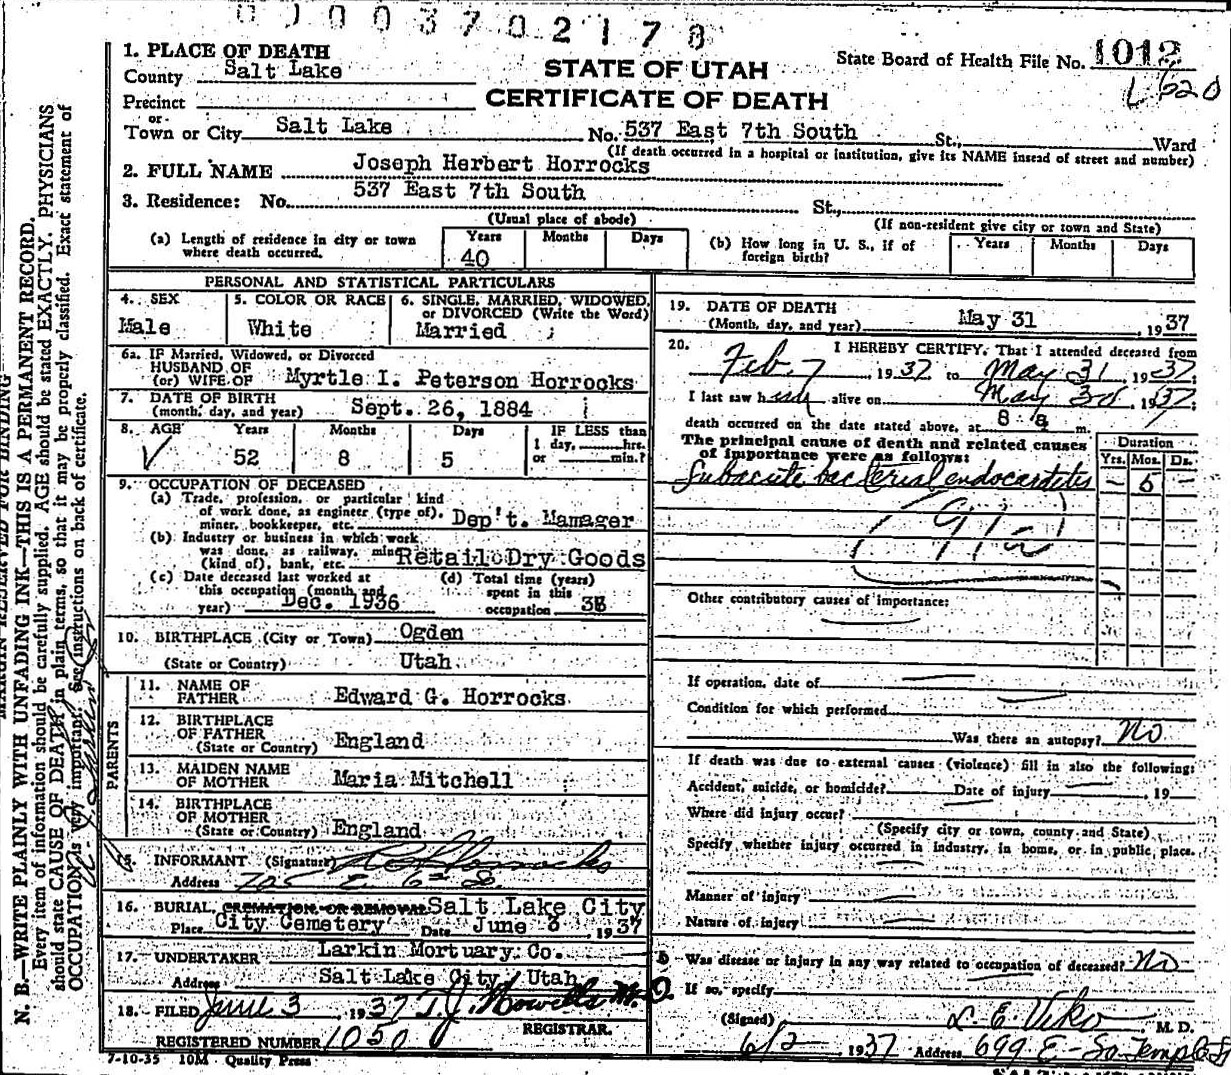 0003702178
State Board of Health File No. 1012
L 620
STATE OF UTAH
CERTIFICATE OF DEATH
1. PLACE OF DEATH
County Salt Lake
Precinct
or
Town or City Salt Lake No. 537 East 7th South St., Ward
(If death occurred in a hospital or institution, give its NAME insead of street and number)
2. FULL NAME Joseph Herbert Horrocks
3. Residence: No. 537 East 7th South St.,
(Usual place of abode) (If non-resident give city or town and State)
(a) Length of residence in city or town where death occurred. Years 40 Months Days
(b) How long in U. S., if of foreign birth? Years Months Days
PERSONAL AND STATISTICAL PARTICULARS
4. SEX Male
5. COLOR OR RACE White
6. SINGLE, MARRIED, WIDOWED, or DIVORCED (Write the Word) Married
6a. IF Married, Widowed, or Divorced
HUSBAND OF
(or) WIFE OF Myrtle I. Peterson Horrocks
7. DATE OF BIRTH
(month, day, and year) Sept. 26, 1884
8. AGE Years Months Days IF LESS than
1 day, hrs.
52 8 5 or min.?
9. OCCUPATION OF DECEASED
(a) Trade, profession, or particular kind
of work done, as engineer (type of),
miner, bookkeeper, etc. Dep't. Mamager
(b) Industry or business in which work
was done, as railway, mine
(kind of), bank, etc. Retail Dry Goods
(c) Date deceased last worked at
this occupation (month and
year) Dec. 1936
(d) Total time (years)
spent in this
occupation
10. BIRTHPLACE (City or Town) Ogden
(State or Country) Utah
PARENTS
11. NAME OF
FATHER Edward G. Horrocks
12. BIRTHPLACE
OF FATHER
(State or Country) England
13. MAIDEN NAME
OF MOTHER Maria Mitchell
14. BIRTHPLACE
OF MOTHER
(State or Country) England
15. INFORMANT (Signature) Horrocks
Address 705 E. 6th S.
16. BURIAL, CREMATION, OR REMOVAL Salt Lake City
Place City Cemetery Date June 3 1937
17. UNDERTAKER Larkin Mortuary Co.
Address Salt Lake City, Utah
18. FILED June 3, 1937 T. J. Howells M. D.
REGISTRAR.
REGISTERED NUMBER 1050
7-10-35 10M Quality Press
19. DATE OF DEATH
(Month, day, and year) May 31, 1937
20. I HEREBY CERTIFY, That I attended deceased from
Feb 7, 1937 to May 31, 1937
I last saw h alive on May 30, 1937
death occurred on the date stated above, at m.
The principal cause of death and related causes
of importance were as follows: Duration
Yrs. Mos. Ds.
Subacute bacterial endocarditis – 5 –
Other contributory causes of importance:
If operation, date of
Condition for which performed
Was there an autopsy? No
If death was due to external causes (violence) fill in also the following:
Accident, suicide, or homicide? Date of injury , 19
Where did injury occur?
(Specify city or town, county and State)
Specify whether injury occurred in industry, in home, or in public place.
Manner of injury
Nature of injury
Was disease or injury in any way related to occupation of deceased? No
If so, specify
(Signed) L. E. Viko M. D.
6/2 1937 Address 699 E-So. Temple St
MARGIN RESERVED FOR BINDING
N. B.—WRITE PLAINLY WITH UNFADING INK—THIS IS A PERMANENT RECORD.
Every item of information should be carefully supplied. AGE should be stated EXACTLY. PHYSICIANS
should state CAUSE OF DEATH in plain terms, so that it may be properly classified. Exact statement of
OCCUPATION is very important. See instructions on back of certificate.